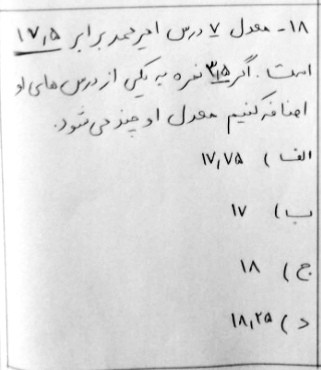 ۱۸- معدل ۷ درس امیرمحمد برابر ۱۷,۵
است. اگر ۳,۵ نمره به یکی از درس های او
اضافه کنیم معدل او چند می شود.
الف ) ۱۷,۷۵
ب ) ۱۷
ج ) ۱۸
د ) ۱۸,۲۵